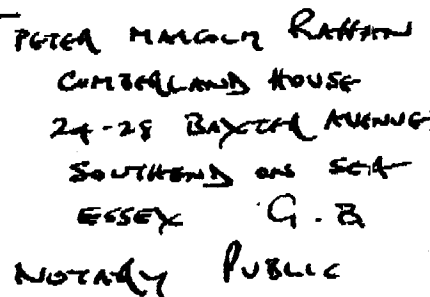 PETER MALCOLM RAFFAN
CUMBERLAND HOUSE
24-28 BAXTER AVENUE
SOUTHEND ON SEA
ESSEX G.B
NOTARY PUBLIC